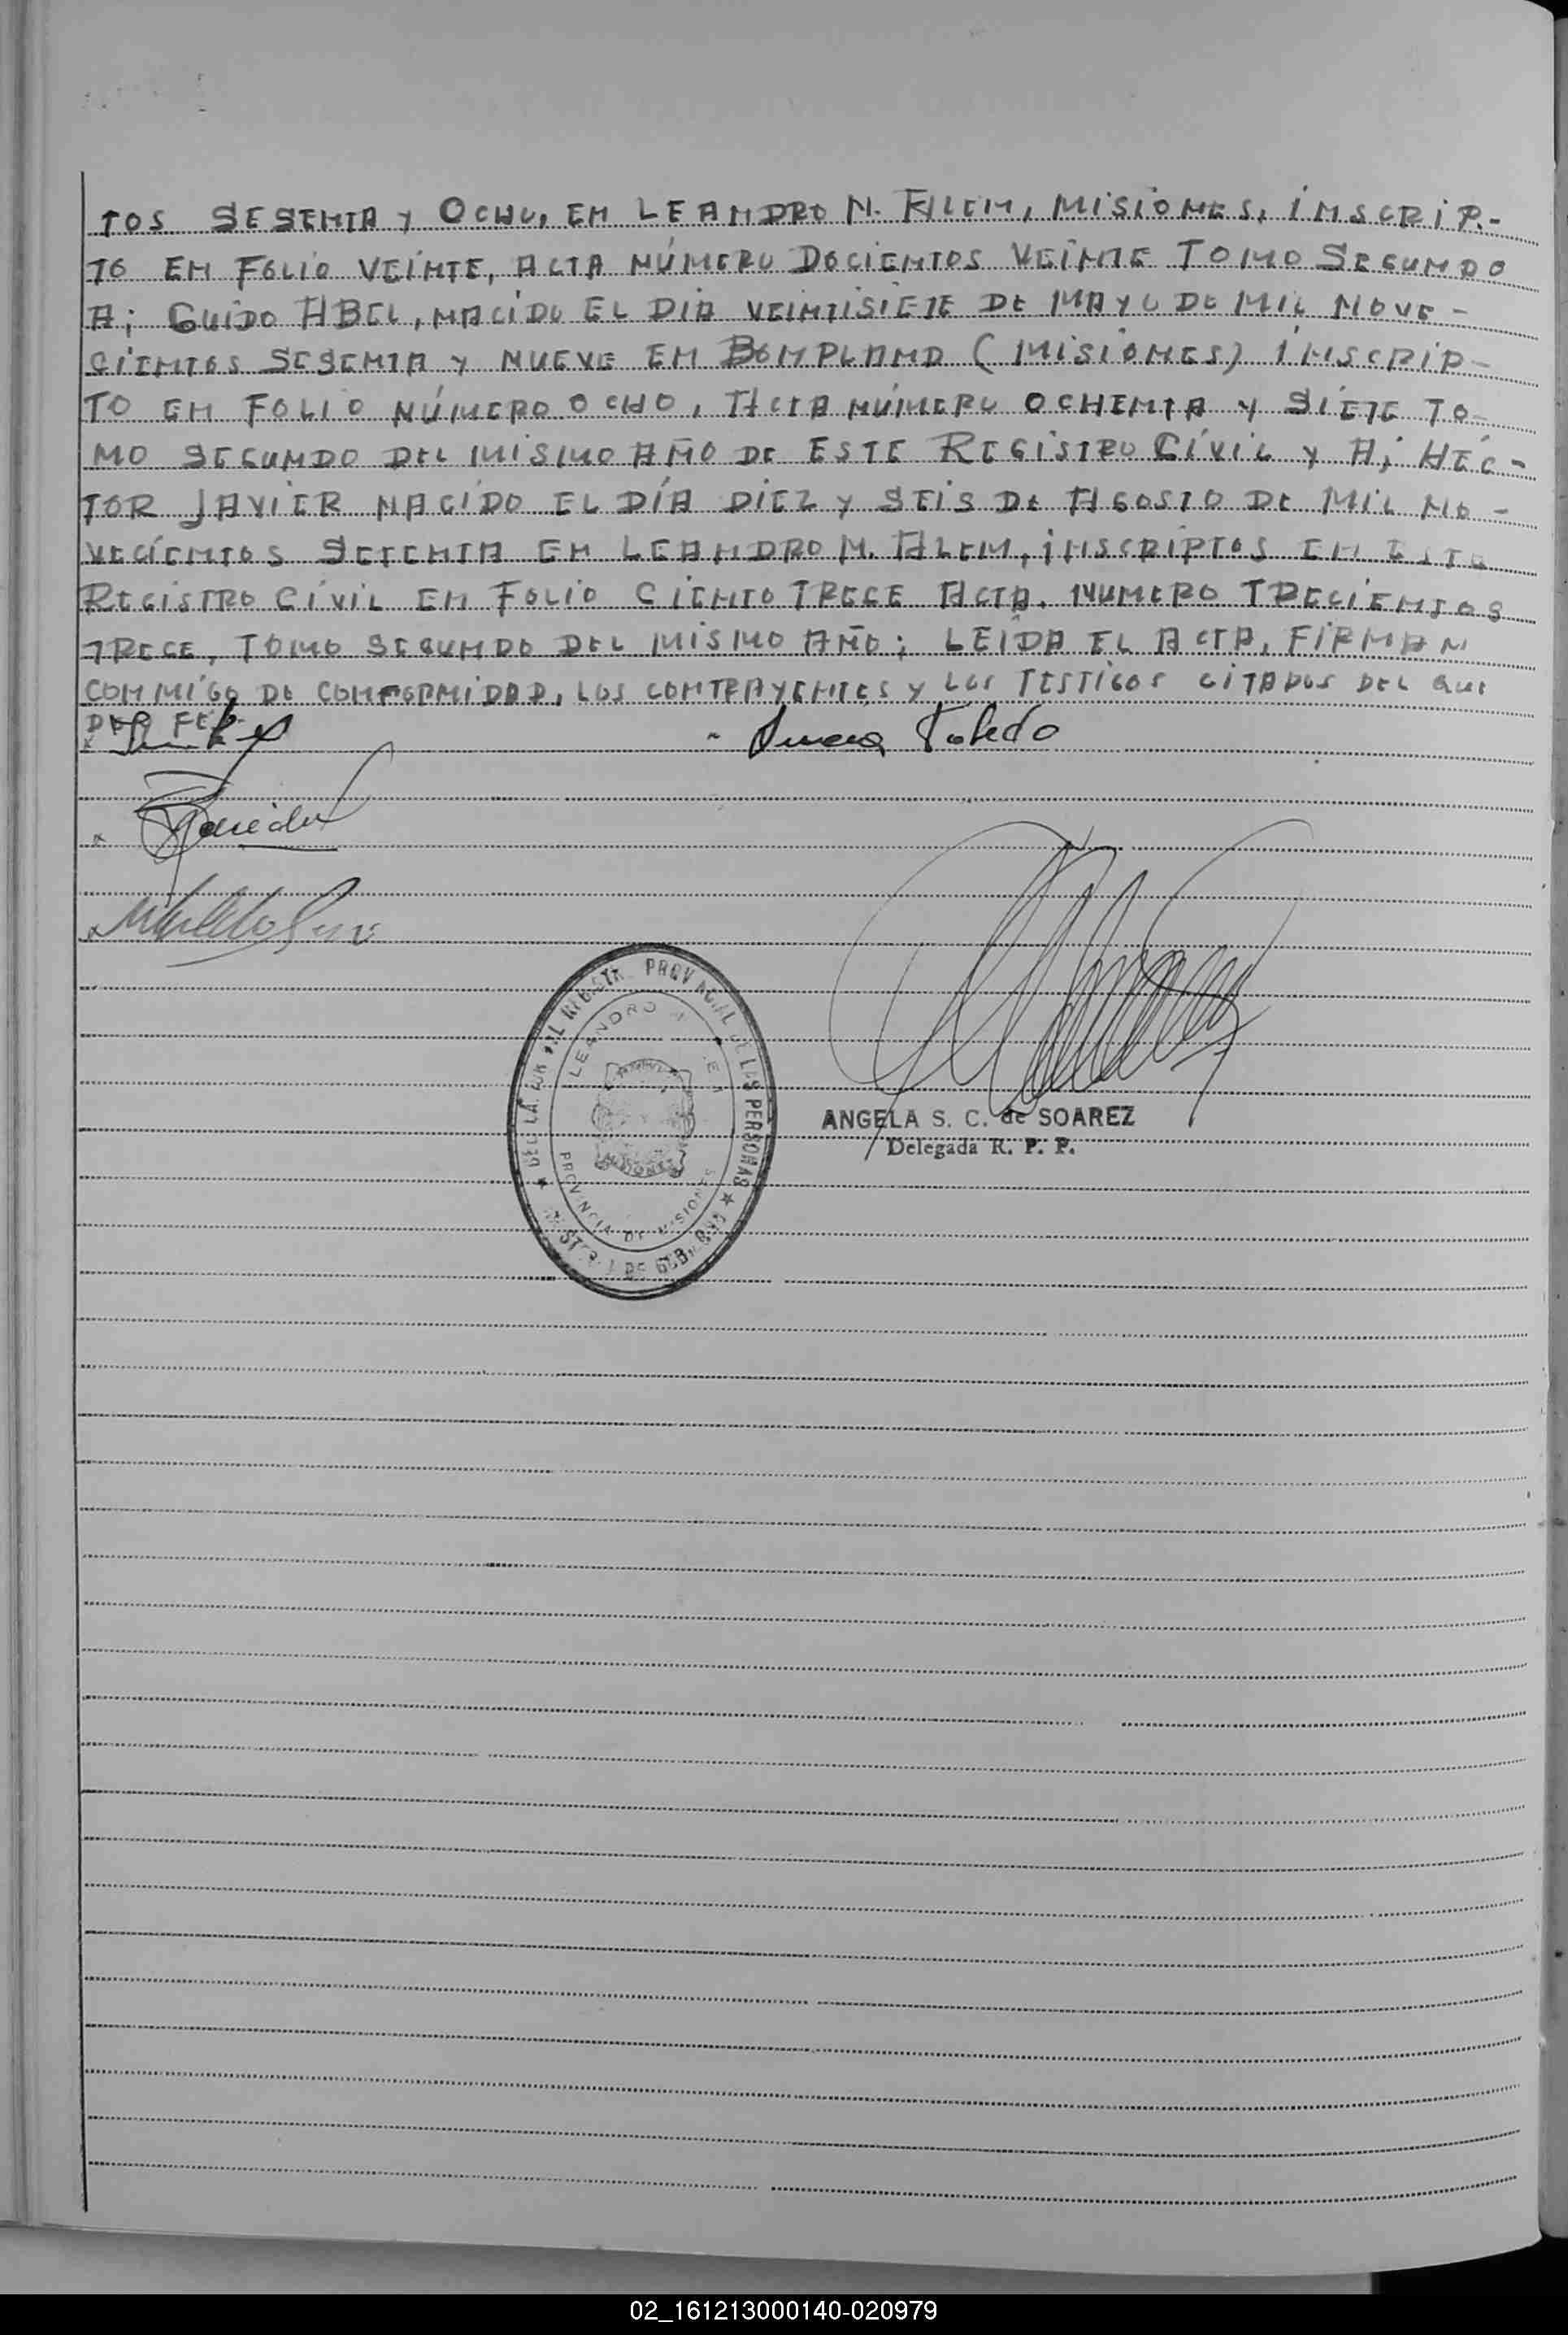 TOS SESENTA Y OCHO, EN LEANDRO N. ALEM, MISIONES, INSCRIP-
TO EN FOLIO VEINTE, ACTA NÚMERO DOCIENTOS VEINTE TOMO SEGUNDO
A; GUIDO ABEL, NACIDO EL DIA VEINTISIETE DE MAYO DE MIL NOVE-
CIENTOS SESENTA Y NUEVE EN BOMPLAND (MISIONES) INSCRIP-
TO EN FOLIO NÚMERO OCHO, ACTA NÚMERO OCHENTA Y SIETE TO-
MO SEGUNDO DEL MISMO AÑO DE ESTE REGISTRO CÍVIL Y A; HÉC-
TOR JAVIER NACIDO EL DÍA DIEZ Y SEIS DE AGOSTO DE MIL NO-
VECÍENTOS SETENTA EN LEANDRO N. ALEM, INSCRIPTOS EN ESTE
REGISTRO CÍVIL EN FOLIO CIENTO TRECE ACTA. NUMERO TRECIENTOS
TRECE, TOMO SEGUNDO DEL MISMO AÑO; LEÍDA EL ACTA, FIRMAN
CONMÍGO DE CONFORMIDAD, LOS CONTRAYENTES Y LOS TESTIGOS CITADOS DEL QUE
DOY FE.
Toledo
DE LAS PERSONAS
LEANDRO N.
PROVINCIA DE MISIONES
ANGELA S. C. de SOAREZ
Delegada R. P. P.
02_161213000140-020979